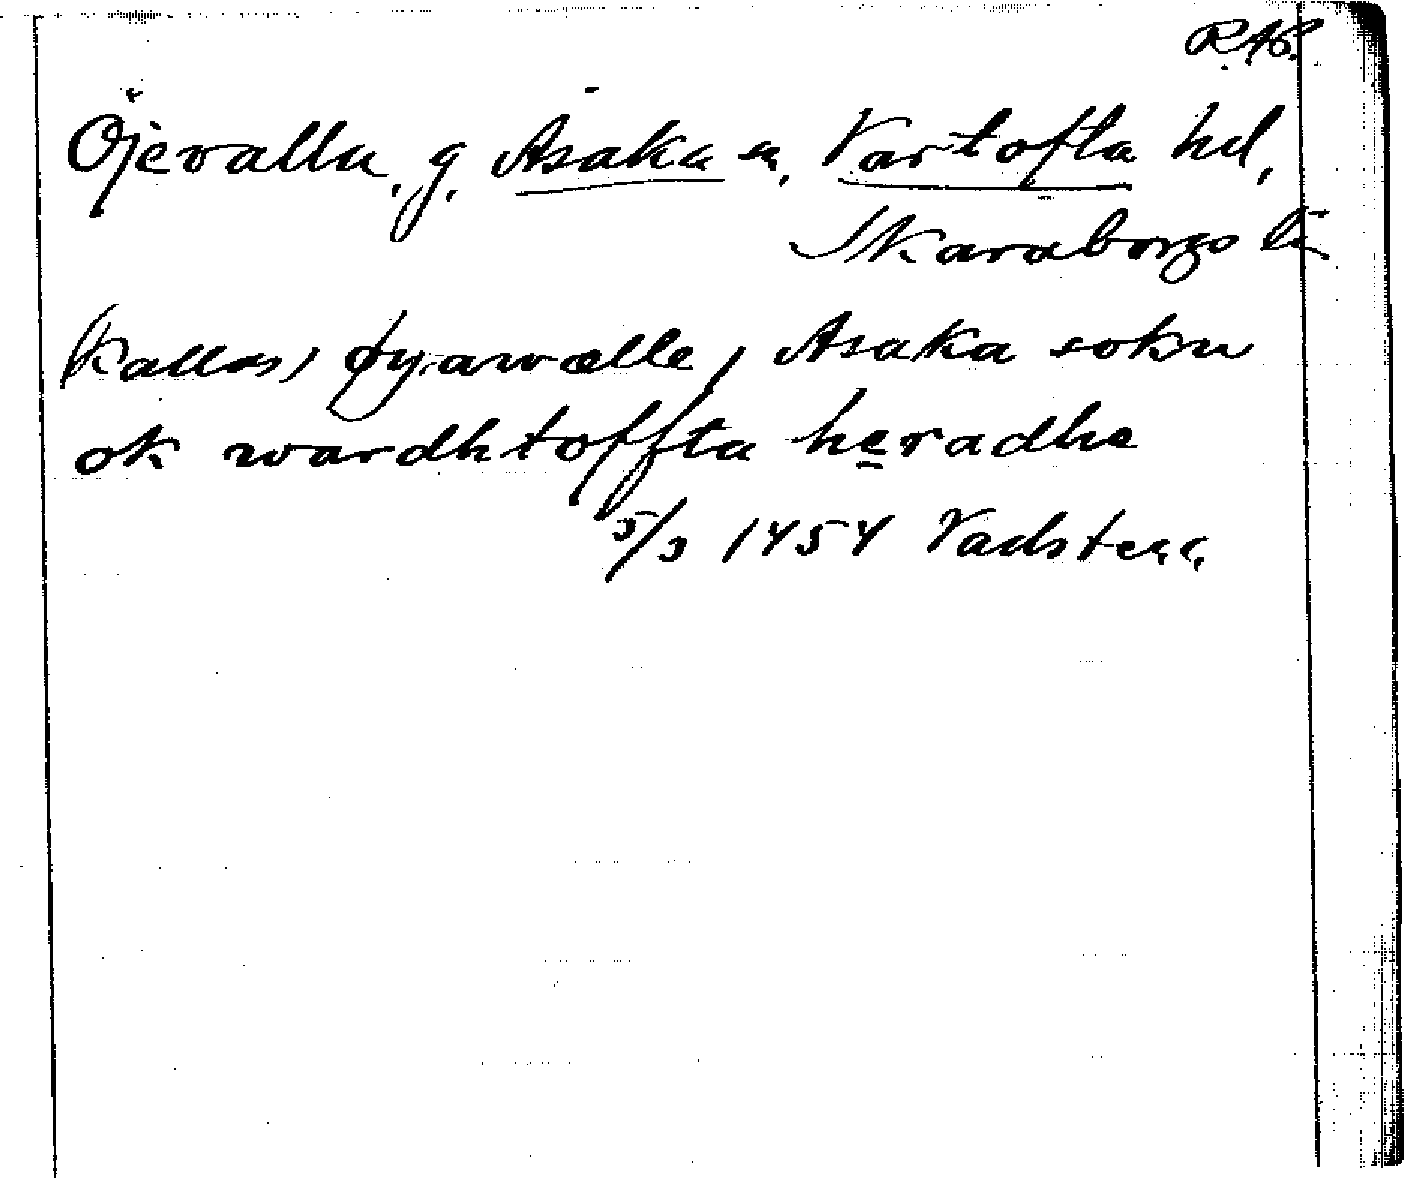 R.A.P.
Öjevalla, g, Åsaka sn, Vartofta hd,
Skaraborgs län
kallas) øyawælle, Asaka sokn
ok wardhtoffta heradhe
5/3 1454 Vadstena